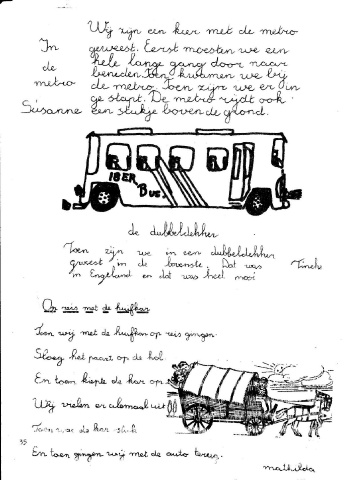 In
de
metro
Susanne
Wij zijn een kier met de metro
geweest. Eerst moesten we een
hele lange gang door naar
beneden. Toen kwamen we bij
de metro. Toen zijn we er in
ge stapt. De metro rijdt ook
een stukje boven de grond.
IBER Bus.
de dubbeldekker
Toen zijn we in een dubbeldekker
geweest in de bovenste. Dat was
in Engeland en dat was heel mooi
Tineke
Op reis met de huifkar
Toen wij met de huifkar op reis gingen.
Sloeg het paart op de hol
En toen kiepte de kar op
Wij vielen er alemaal uit
Toen was de kar stuk
En toen gingen wij met de auto terug.
mathilda
35